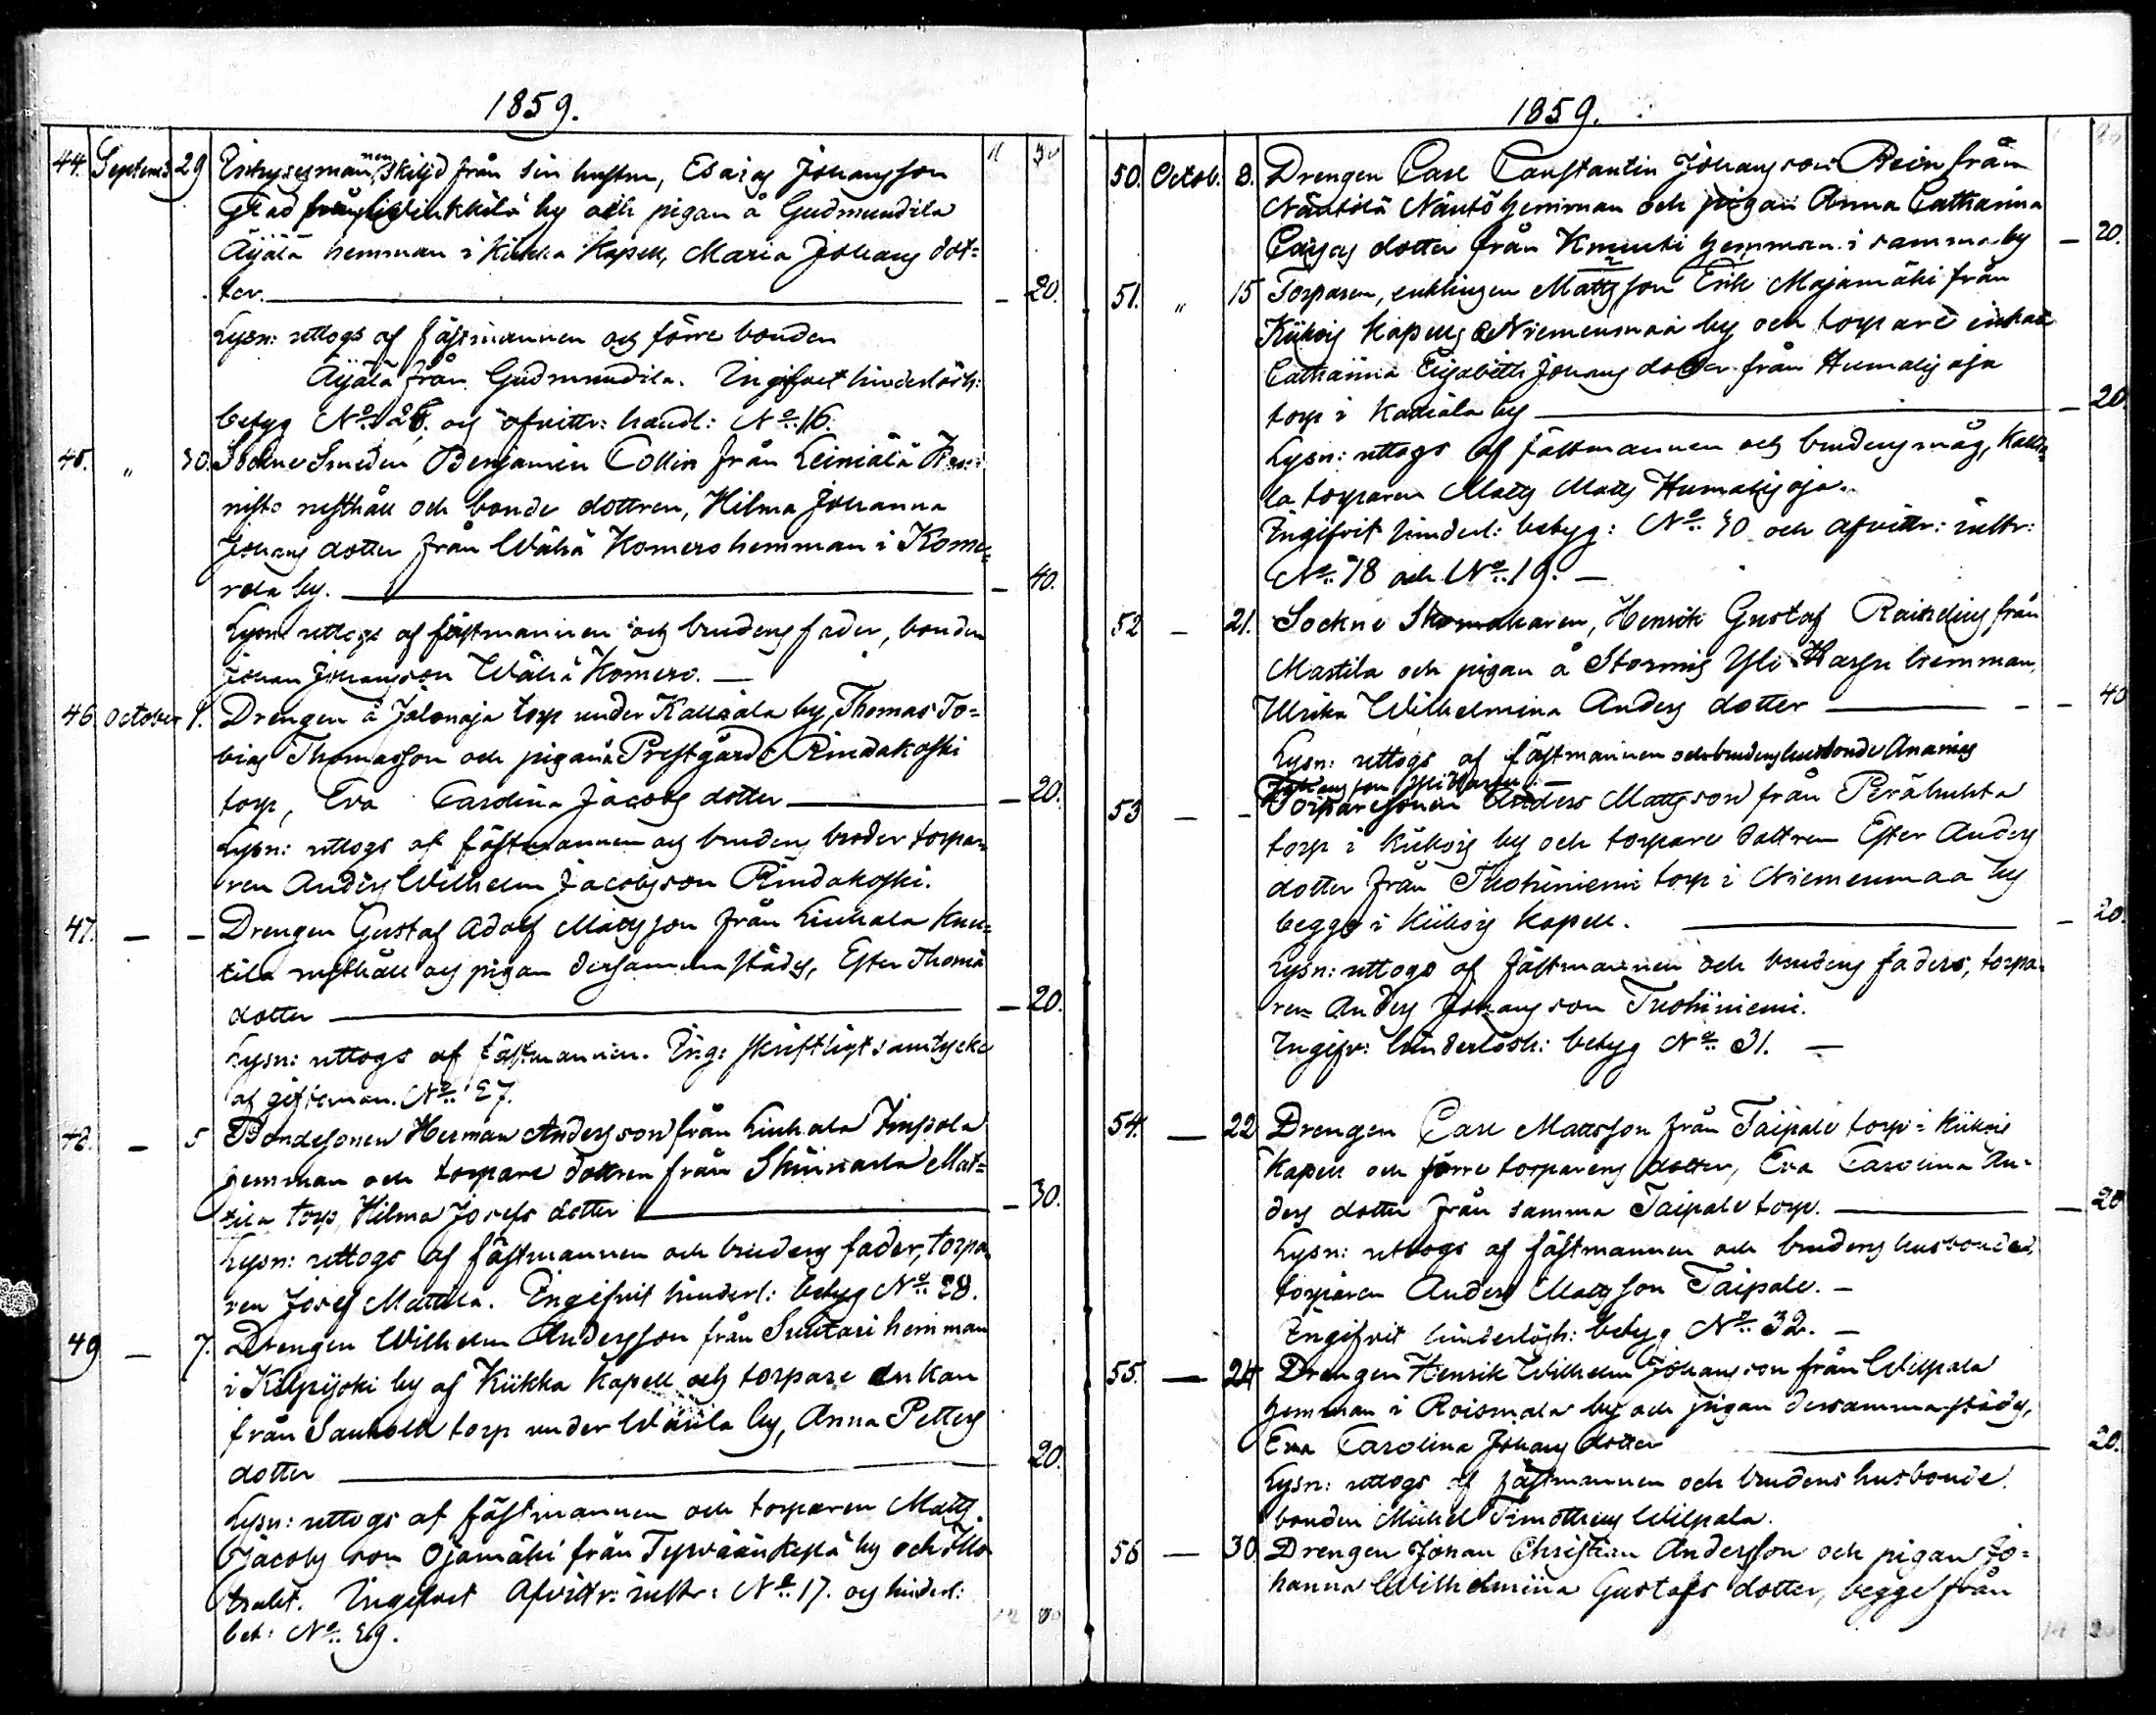 1859.
44. Septemb. 29 Inhysesmannen, skiljd från sin hustru, Esaias Johansson
Glad från Winkkilä by och pigan å Gudmundila
Äijälä hemman i Kiikka Kapell, Maria Johans dot=
ter. — 20.
Lysn: uttogs af fästmannen och förre bonden
Äijälä från Gudmundila. Ingifvet hinderlösh:
betyg No. 26, och afvittr: handl: No. 16.
45. " 30. Sockne Smeden Benjamin Collin från Leiniälä
nisto rusthåll och bonde dottren, Hilma Johanna
Johans dotter från Wähä Komero hemman i Kome=
rola by. — 40.
Lysn: uttogs af fästmannen och brudens fader, bonden
Johan Johansson Wähä Komero. —
46. October 1. Drengen å Jalonoja torp under Kalliala by, Thomas To=
bias Thomasson och pigan å Prestgårds Rindakoski
torp, Eva Carolina Jacobs dotter — 20.
Lysn: uttogs af fästmannen och brudens broder torpa=
ren Anders Wilhelm Jacobsson Rindakoski.
47. — — Drengen Gustaf Adolf Matsson från Liuhala Knu=
tila rusthåll och pigan dersammastädes, Ester Thomas
dotter — 20.
Lysn: uttogs af fästmannen. Ing: skriftligt samtycke
af giftoman. No. 27.
48. — 5 Bondesonen Herman Andersson från Liuhala Impola
hemman och torpare dottren från Skinnarla Mat=
tila torp, Hilma Josefs dotter — 30.
Lysn: uttogs af fästmannen och brudens fader, torpa=
ren Josef Mattila. Ingifvit hinderl: betyg No. 28.
49 — 7. Drengen Wilhelm Andersson från Suutari hemman
i Kilpijoki by af Kiikka Kapell och torpare enkan
från Saukola torp under Waula by, Anna Petters
dotter — 20.
Lysn: uttogs af fästmannen och torparen Matts
Jacobs son Ojamäki från Tyrväänkylä by och
Ingifvet Afvittr: instr: No. 17. och hinderl:
bet: No. 29.
1859.
50. Octob. 8. Drengen Carl Constantin Johansson Rein från
Näntölä Näntö hemman och pigan Anna Catharina
Cajas dotter från Knuuti hemman i samma by — 20.
51. " 15 Torparen, enklingen Matts son Erik Majamäki från
Kiikois Kapells Niemenmaa by och torpare enkan
Catharina Elisabeth Johans dotter från Humalisoja
torp i Kaltsila by — 20.
Lysn: uttogs af fästmannen och brudens måg,
torparen Matts Matts Humalisoja.
Ingifvit hinderl: betyg: No. 30 och afvittr: instr:
No. 18 och No. 19. —
52 — 21. Sockne Skomakaren, Henrik Gustaf från
Martila och pigan å Stormis Yli Harju hemman,
Ulrika Wilhelmina Anders dotter — 40
Lysn: uttogs af fästmannen och brudens husbonde Ananias
Johansson Yli Harju. —
53 — - Torparesonen Anders Mattsson från Perähuhta
torp i Kiikois by och torpare dottren Ester Anders
dotter från Tuohiniemi torp i Niemenmaa by
begge i Kiikois Kapell. — 20.
Lysn: uttogs af fästmannen och brudens fader, torpa=
ren Anders Johansson Tuohiniemi.
Ingifv: hinderlösh: betyg No. 31. —
54. — 22 Drengen Carl Mattsson från Taipale torp i Kiikois
Kapell och förre torparens dotter, Eva Carolina An=
ders dotter från samma Taipale torp. — 20
Lysn: uttogs af fästmannen och brudens husbonde,
torparen Anders Matsson Taipale. —
Ingifvit hinderlösh: betyg No. 32. —
55. — 24 Drengen Henrik Wilhelm Johansson från Wilpala
hemman i Roismala by och pigan dersammastädes,
Eva Carolina Johans dotter — 20.
Lysn: uttogs af fästmannen och brudens husbonde
bonden Michel Timotheus Wilpala.
56 — 30 Drengen Johan Christian Andersson och pigan Jo=
hanna Wilhelmina Gustafs dotter, begge från